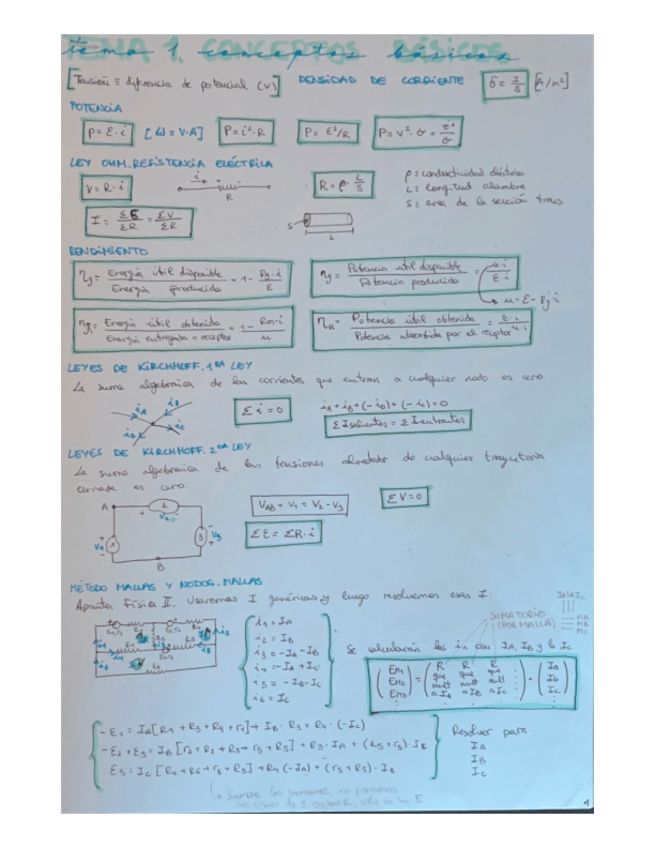 TEMA 1. CONCEPTOS BÁSICOS
tema 1. conceptos básicos
[Tensión ≡ diferencia de potencial (V)] DENSIDAD DE CORRIENTE δ = I/S [A/m²]
POTENCIA
P = E·i [W = V·A] P = i²·R P = E²/R P = V²·σ = i²/σ
LEY OHM. RESISTENCIA ELÉCTRICA
V = R·i i R R = ρ·L/S ρ = conductividad eléctrica
L = longitud alambre
I = ΣE/ΣR = ΣV/ΣR S L S = area de la sección trans.
RENDIMIENTO
ηg = Energía útil disponible / Energía producida = 1 - Rg·i/E ηg = Potencia útil disponible / Potencia producida = u·i/E·i
u = E - Rg·i
Energía útil obtenida / Energía entregada a receptor = 1 - Rm·i/u ηR = Potencia útil obtenida / Potencia absorbida por el receptor = E·i/u·i
LEYES DE KIRCHHOFF. 1ra LEY
La suma algebraica de las corrientes que entran a cualquier nodo es cero.
iA iB iC iD Σi = 0 iA + iB + (-iD) + (-iC) = 0
ΣIsalientes = ΣIentrantes
LEYES DE KIRCHHOFF. 2da LEY
La suma algebraica de las tensiones alrededor de cualquier trayectoria
cerrada es cero.
A 2 V2 VAB = V1 = V2 - V3 ΣV = 0
V1 1 3 V3 ΣE = ΣR·i
B
MÉTODO MALLAS Y NODOS. MALLAS
Apuntes Física II. Usaremos I genéricas, y luego resolvemos esas I:
SUMATORIO
(POR MALLA)
i1 = IA
i2 = IB
i3 = -IA - IB
i4 = -IA + IC
i5 = -IB - IC
i6 = IC
Se calcularán las in con IA, IB y la IC
-E1 = IA[R1 + R3 + R4 + r1] + IB·R3 + R4·(-IC)
-E2 + E5 = IB[r2 + R2 + R3 + r5 + R5] + R3·IA + (R5 + r5)·IB
E5 = IC[R4 + R6 + r5 + R5] + R4(-IA) + (r5 + R5)·IB
Resolver para
IA
IB
IC
Siempre las sumamos, no ponemos
1